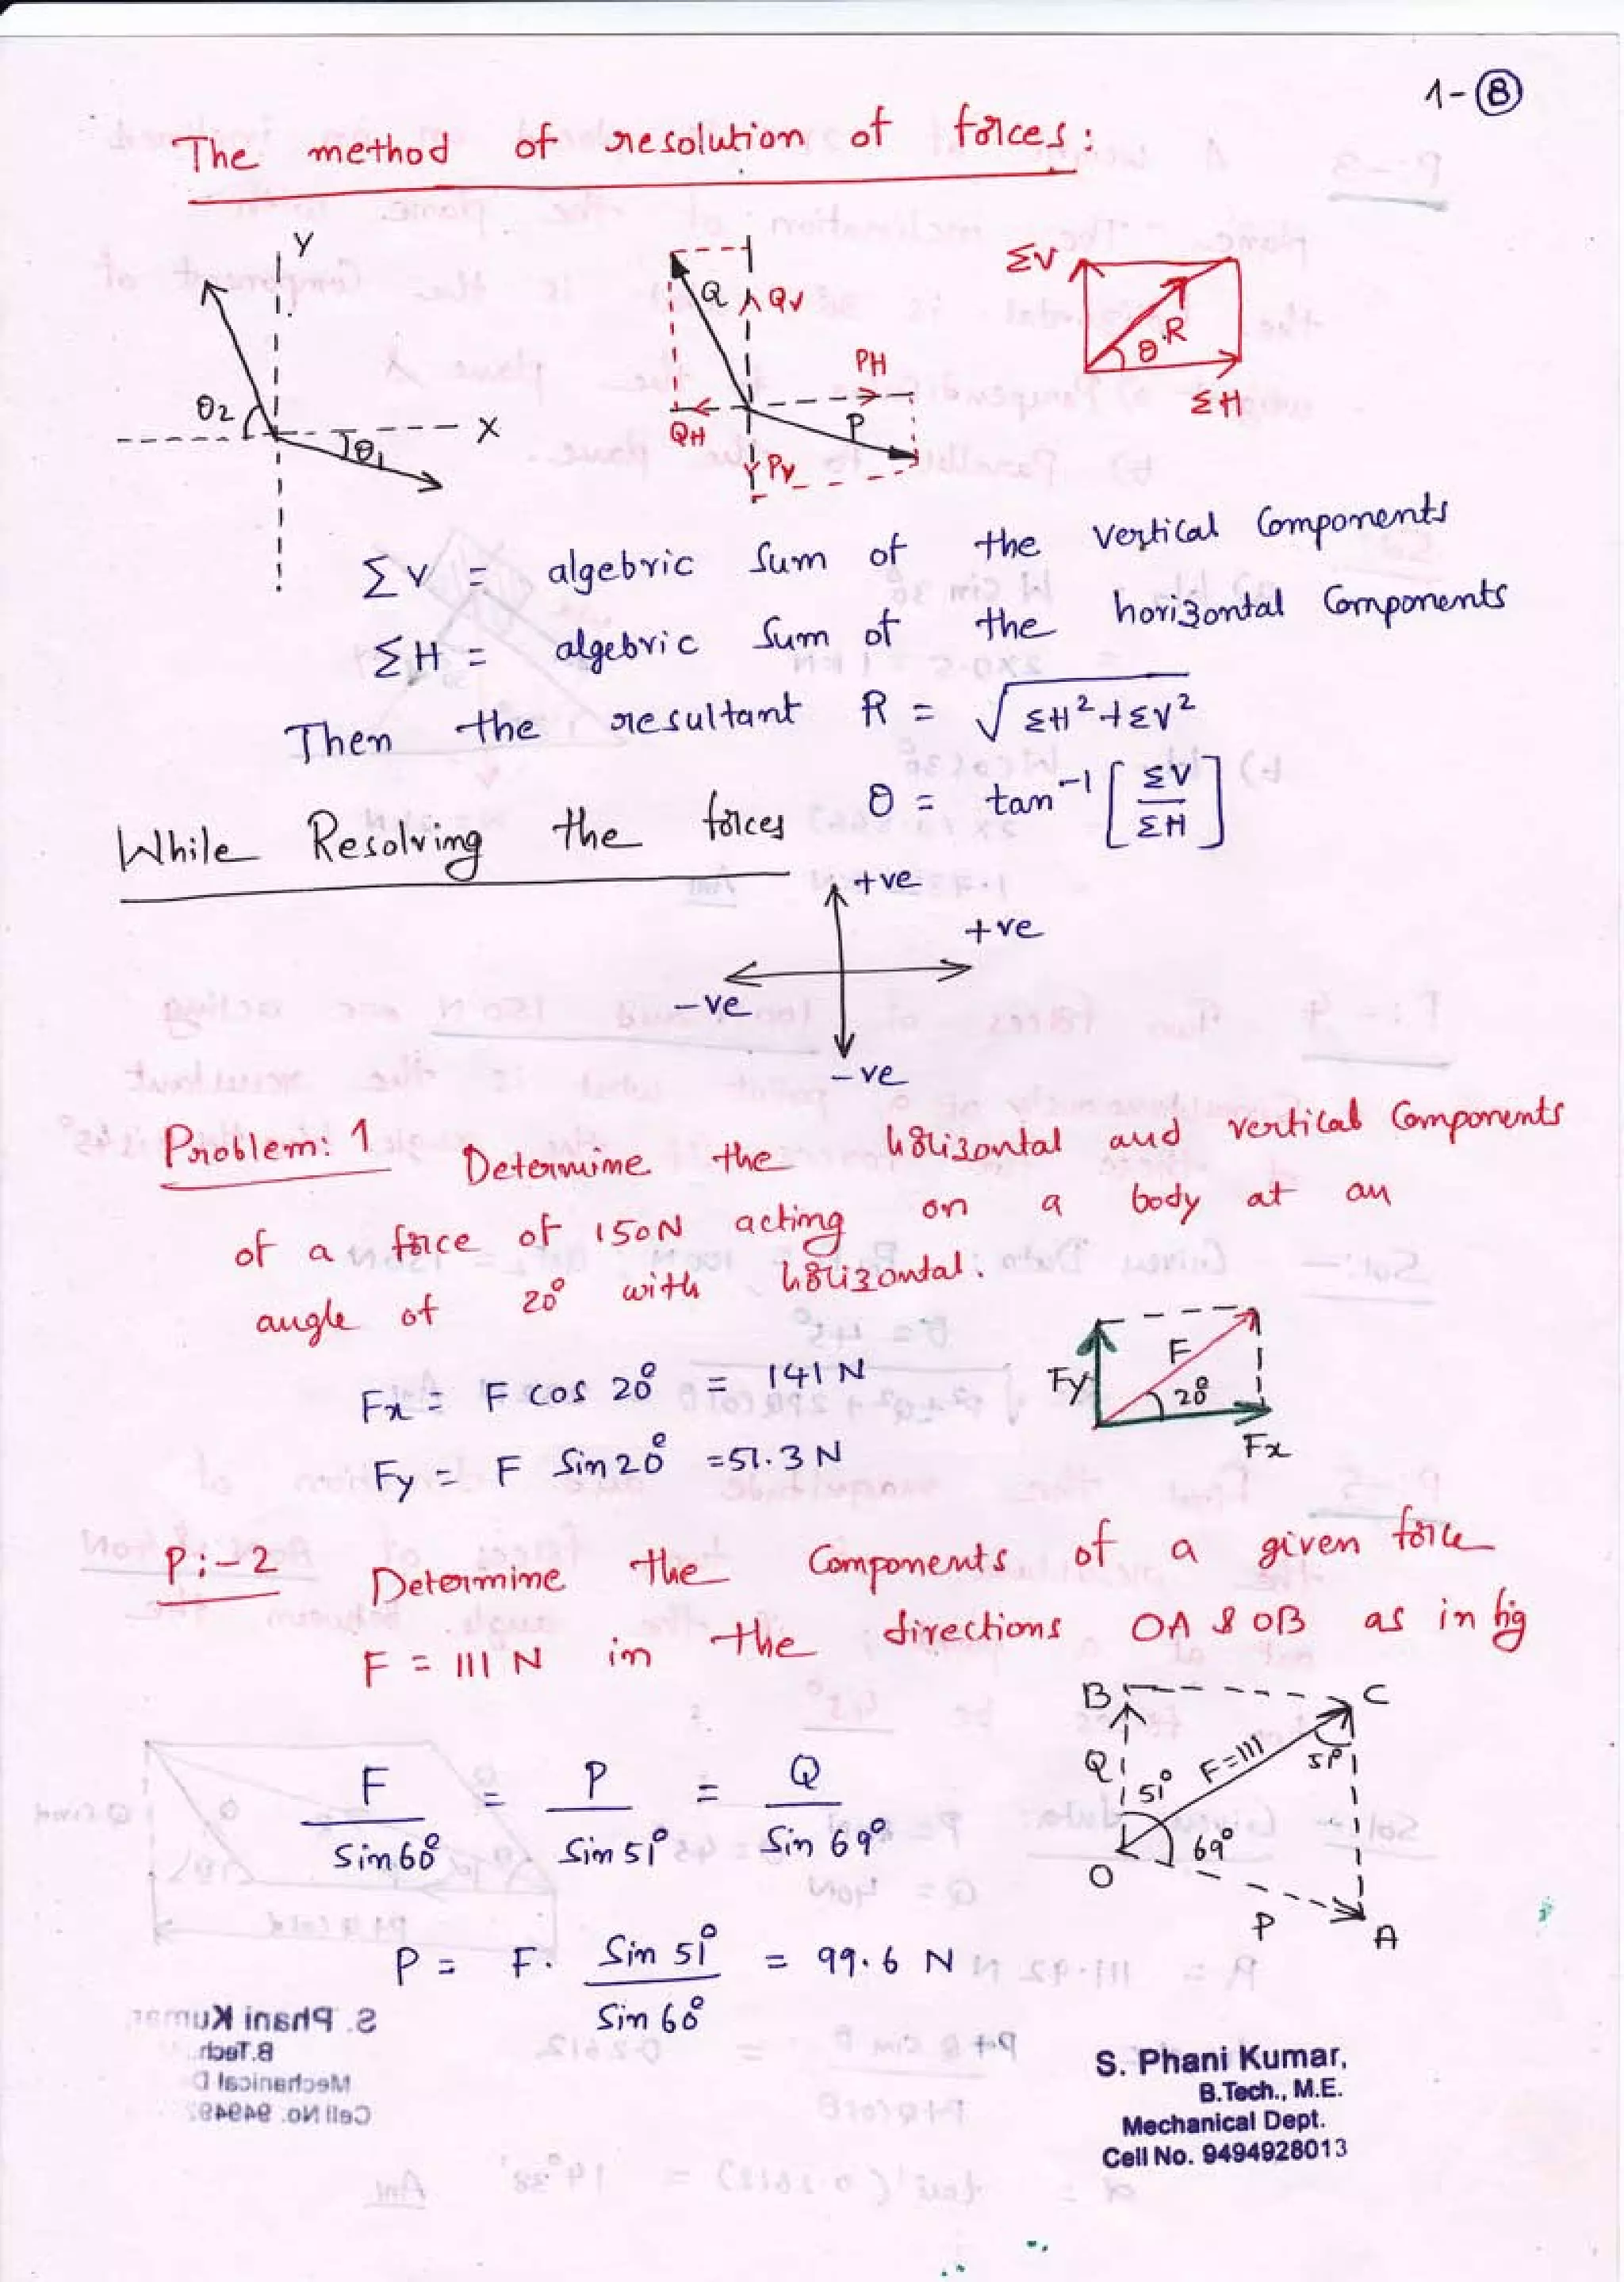 1-8
The method of resolution of forces:
Y
θ2
X
θ1
Q
QV
PH
QH
P
PV
ΣV
R
θ
ΣH
ΣV = algebric sum of the vertical components
ΣH = algebric sum of the horizontal components
Then the resultant R = √ΣH²+ΣV²
θ = tan⁻¹[ΣV/ΣH]
While Resolving the forces
+ve
+ve
-ve
-ve
Problem: 1 Determine the horizontal and vertical components
of a force of 150N acting on a body at an
angle of 20° with horizontal.
Fx = F cos 20° = 141 N
Fy = F sin 20° = 51.3 N
Fy
F
20°
Fx
P:-2 Determine the components of a given force
F = 111 N in the directions OA & OB as in fig
B
C
Q
F=111
51°
51°
69°
O
P
A
F/sin60° = P/sin51° = Q/sin69°
P = F. sin51°/sin60° = 99.6 N
S. Phani Kumar,
B.Tech., M.E.
Mechanical Dept.
Cell No. 9494928013